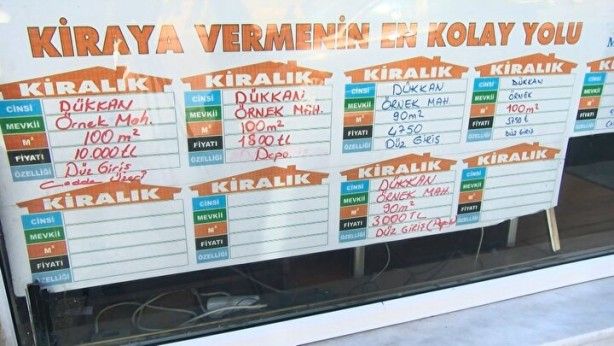 KİRAYA VERMENİN EN KOLAY YOLU
KİRALIK
CİNSİ DÜKKAN
MEVKİİ Örnek Mah.
M² 100 m²
FİYATI 10.000 tl
ÖZELLİĞİ Düz Giriş
KİRALIK
CİNSİ DÜKKAN
MEVKİİ ÖRNEK MAH.
M² 100 m²
FİYATI 1800 tl
ÖZELLİĞİ Depo.
KİRALIK
CİNSİ DÜKKAN
MEVKİİ ÖRNEK MAH
M² 90m²
FİYATI 4750
ÖZELLİĞİ DÜZ GİRİŞ
KİRALIK
CİNSİ DÜKKAN
MEVKİİ ÖRNEK
M² 100 m²
FİYATI 3750 TL
ÖZELLİĞİ DÜZ GİRİŞ
CİNSİ
MEVKİİ
M²
FİYATI
ÖZELLİĞİ
KİRALIK
CİNSİ
MEVKİİ
M²
FİYATI
ÖZELLİĞİ
KİRALIK
CİNSİ
MEVKİİ
M²
FİYATI
ÖZELLİĞİ
KİRALIK
CİNSİ DÜKKAN
MEVKİİ ÖRNEK MAH.
M² 90m²
FİYATI 3000 TL
ÖZELLİĞİ DÜZ GİRİŞ
KİRALIK
CİNSİ
MEVKİİ
M²
FİYATI
ÖZELLİĞİ